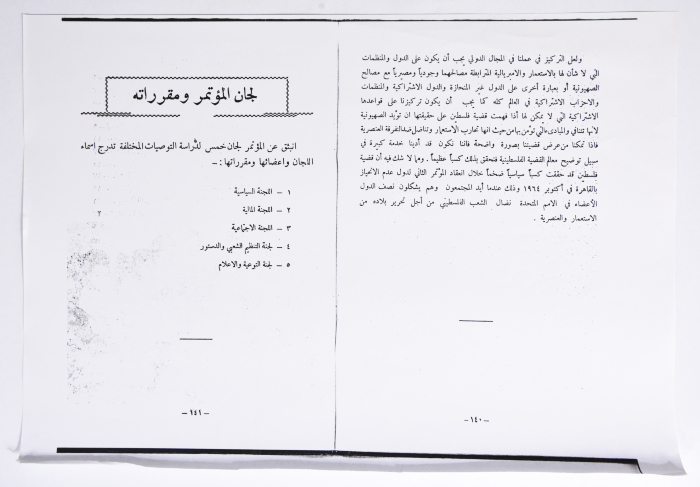 ولعل التركيز في عملنا في المجال الدولي يجب أن يكون على الدول والمنظمات
التي لا شأن لها بالاستعمار والامبريالية المترابطة مصالحهما وجودياً ومصيرياً مع مصالح
الصهيونية أو بعبارة أخرى على الدول غير المنحازة والدول الاشتراكية والمنظمات
والاحزاب الاشتراكية في العالم كله كما يجب أن يكون تركيزنا على قواعدها
الاشتراكية التي لا يمكن لها اذا فهمت قضية فلسطين على حقيقتها ان تؤيد الصهيونية
لأنها تتنافى والمبادىء التي تؤمن بها من حيث انها تحارب الاستعمار وتناضل ضد التفرقة العنصرية
فاذا تمكنا من عرض قضيتنا بصورة واضحة فاننا نكون قد أدينا خدمة كبيرة في
سبيل توضيح معالم القضية الفلسطينية فنحقق بذلك كسباً عظيماً. ومما لا شك فيه أن قضية
فلسطين قد حققت كسباً سياسياً ضخماً خلال انعقاد المؤتمر الثاني لدول عدم الانحياز
بالقاهرة في أكتوبر ١٩٦٤ وذلك عندما أيد المجتمعون وهم يشكلون نصف الدول
الأعضاء في الامم المتحدة نضال الشعب الفلسطيني من أجل تحرير بلاده من
الاستعمار والعنصرية.
– ١٤٠ –
لجان المؤتمر ومقرراته
انبثق عن المؤتمر لجان خمس لدراسة التوصيات المختلفة تدرج اسماء
اللجان واعضائها ومقرراتها : –
١ – اللجنة السياسية
٢ – اللجنة المالية
٣ – اللجنة الاجتماعية
٤ – لجنة التنظيم الشعبي والدستور
٥ – لجنة التوعية والاعلام
– ١٤١ –